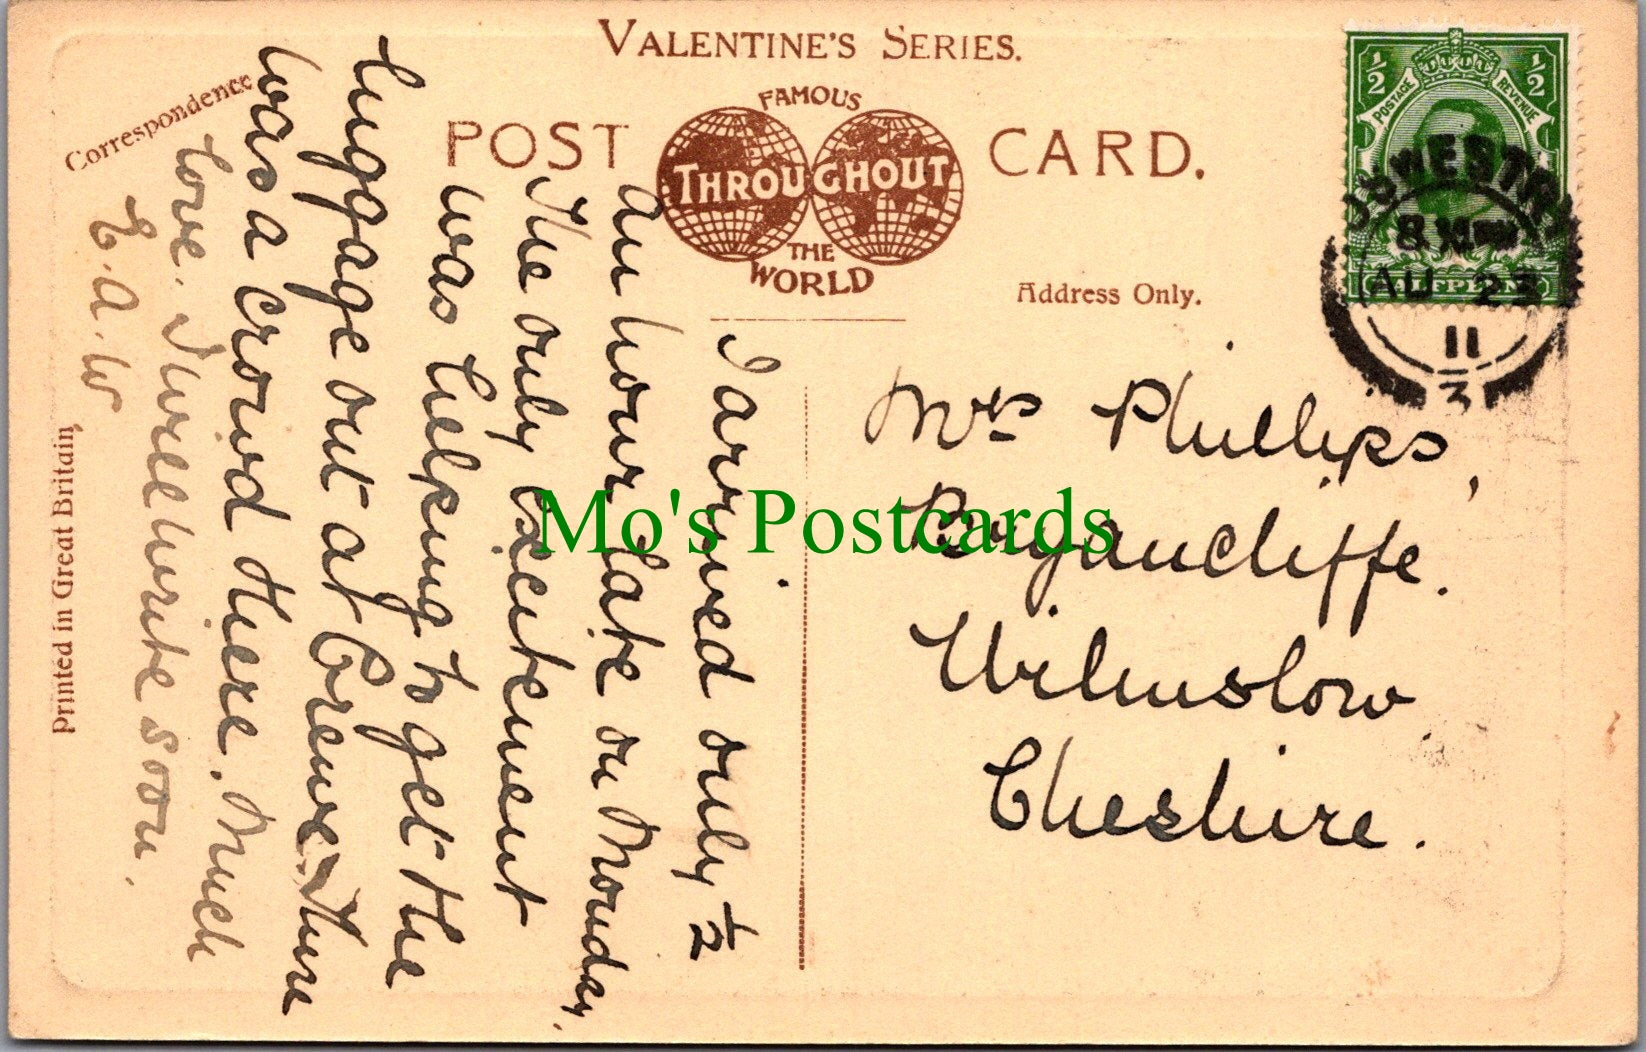 VALENTINE'S SERIES.
FAMOUS
POST CARD.
THROUGHOUT
THE
WORLD
Correspondence
Address Only.
Printed in Great Britain,
½ ½
POSTAGE REVENUE
HALFPENNY
OSWESTRY
AU 23
11
3
I arrived only ½
an hour late on Monday.
The only excitement
was helping to get the
luggage out at Crewe. There
was a crowd there. Much
love. I will write soon.
E.A.W
Mrs Phillips,
Bryancliffe.
Wilmslow
Cheshire.
Mo's Postcards